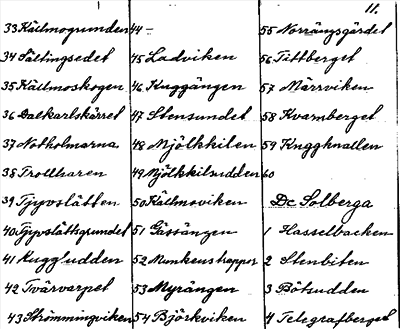 11.
33 Källmogrunden
34 Sältingsedet
35 Källmoskogen
36 Dalkarlskärret
37 Notholmarna
38 Trollharen
39 Tjyvslätten
40 Tjyvslättsgrundet
41 Kuggludden
42 Tvärvarpet
43 Strömmingviken
44 –
45 Ladviken
46 Kuggängen
47 Stensundet
48 Mjölkkilen
49 Mjölkkilsudden
50 Källmoviken
51 Gässängen
52 Munkens hoppor
53 Myrängen
54 Björkviken
55 Norrängsgärdet
56 Tittberget
57 Märrviken
58 Kvarnberget
59 Knaggknallen
60
De Solberga
1 Hasselbacken
2 Stenbiten
3 Båtsudden
4 Telegrafberget